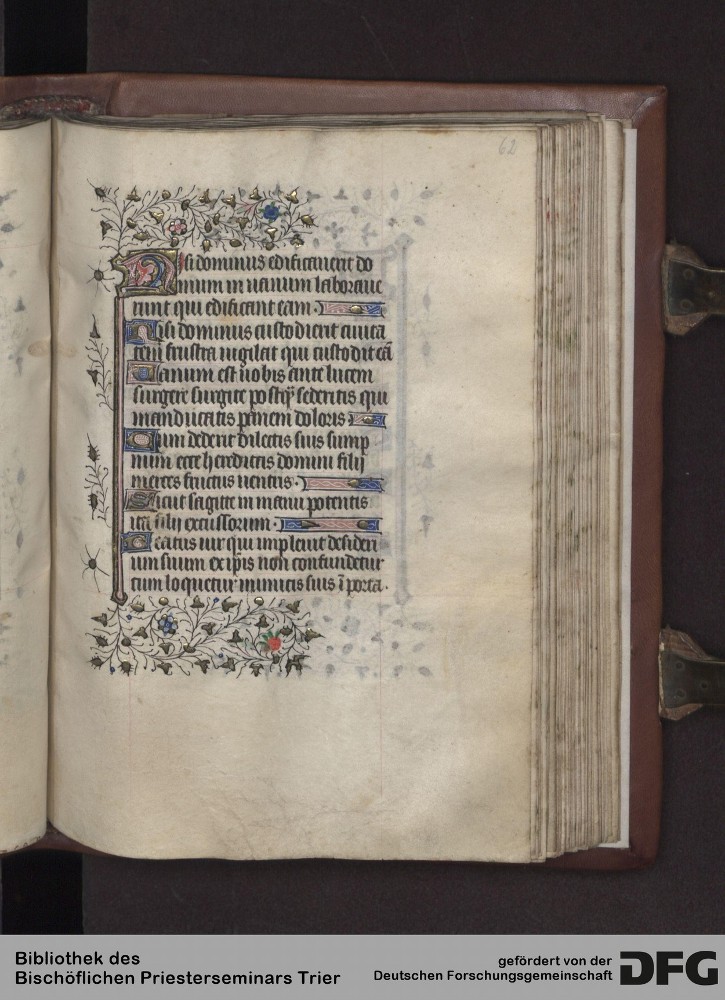 62
Nisi dominus edificauerit do
mum in uanum laboraue
runt qui edificant eam.
Nisi dominus custodierit ciuita
tem frustra uigilat qui custodit eā
Uanum est uobis ante lucem
surgere surgite postq̄ sederitis qui
manducatis panem doloris.
Cum dederit dilectis suis somp
num ecce hereditas domini filij
merces fructus uentris.
Sicut sagitte in manu potentis
ita filij excussorum.
Beatus uir qui impleuit desideri
um suum ex ip̄is non confundetur
cum loquetur inimicis suis ī porta.
Bibliothek des
Bischöflichen Priesterseminars Trier
gefördert von der
Deutschen Forschungsgemeinschaft
DFG